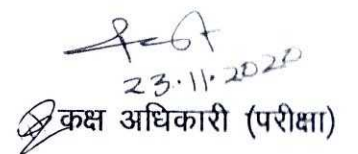 23.11.2020
कक्ष अधिकारी (परीक्षा)